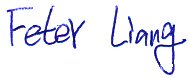 Feter Liang